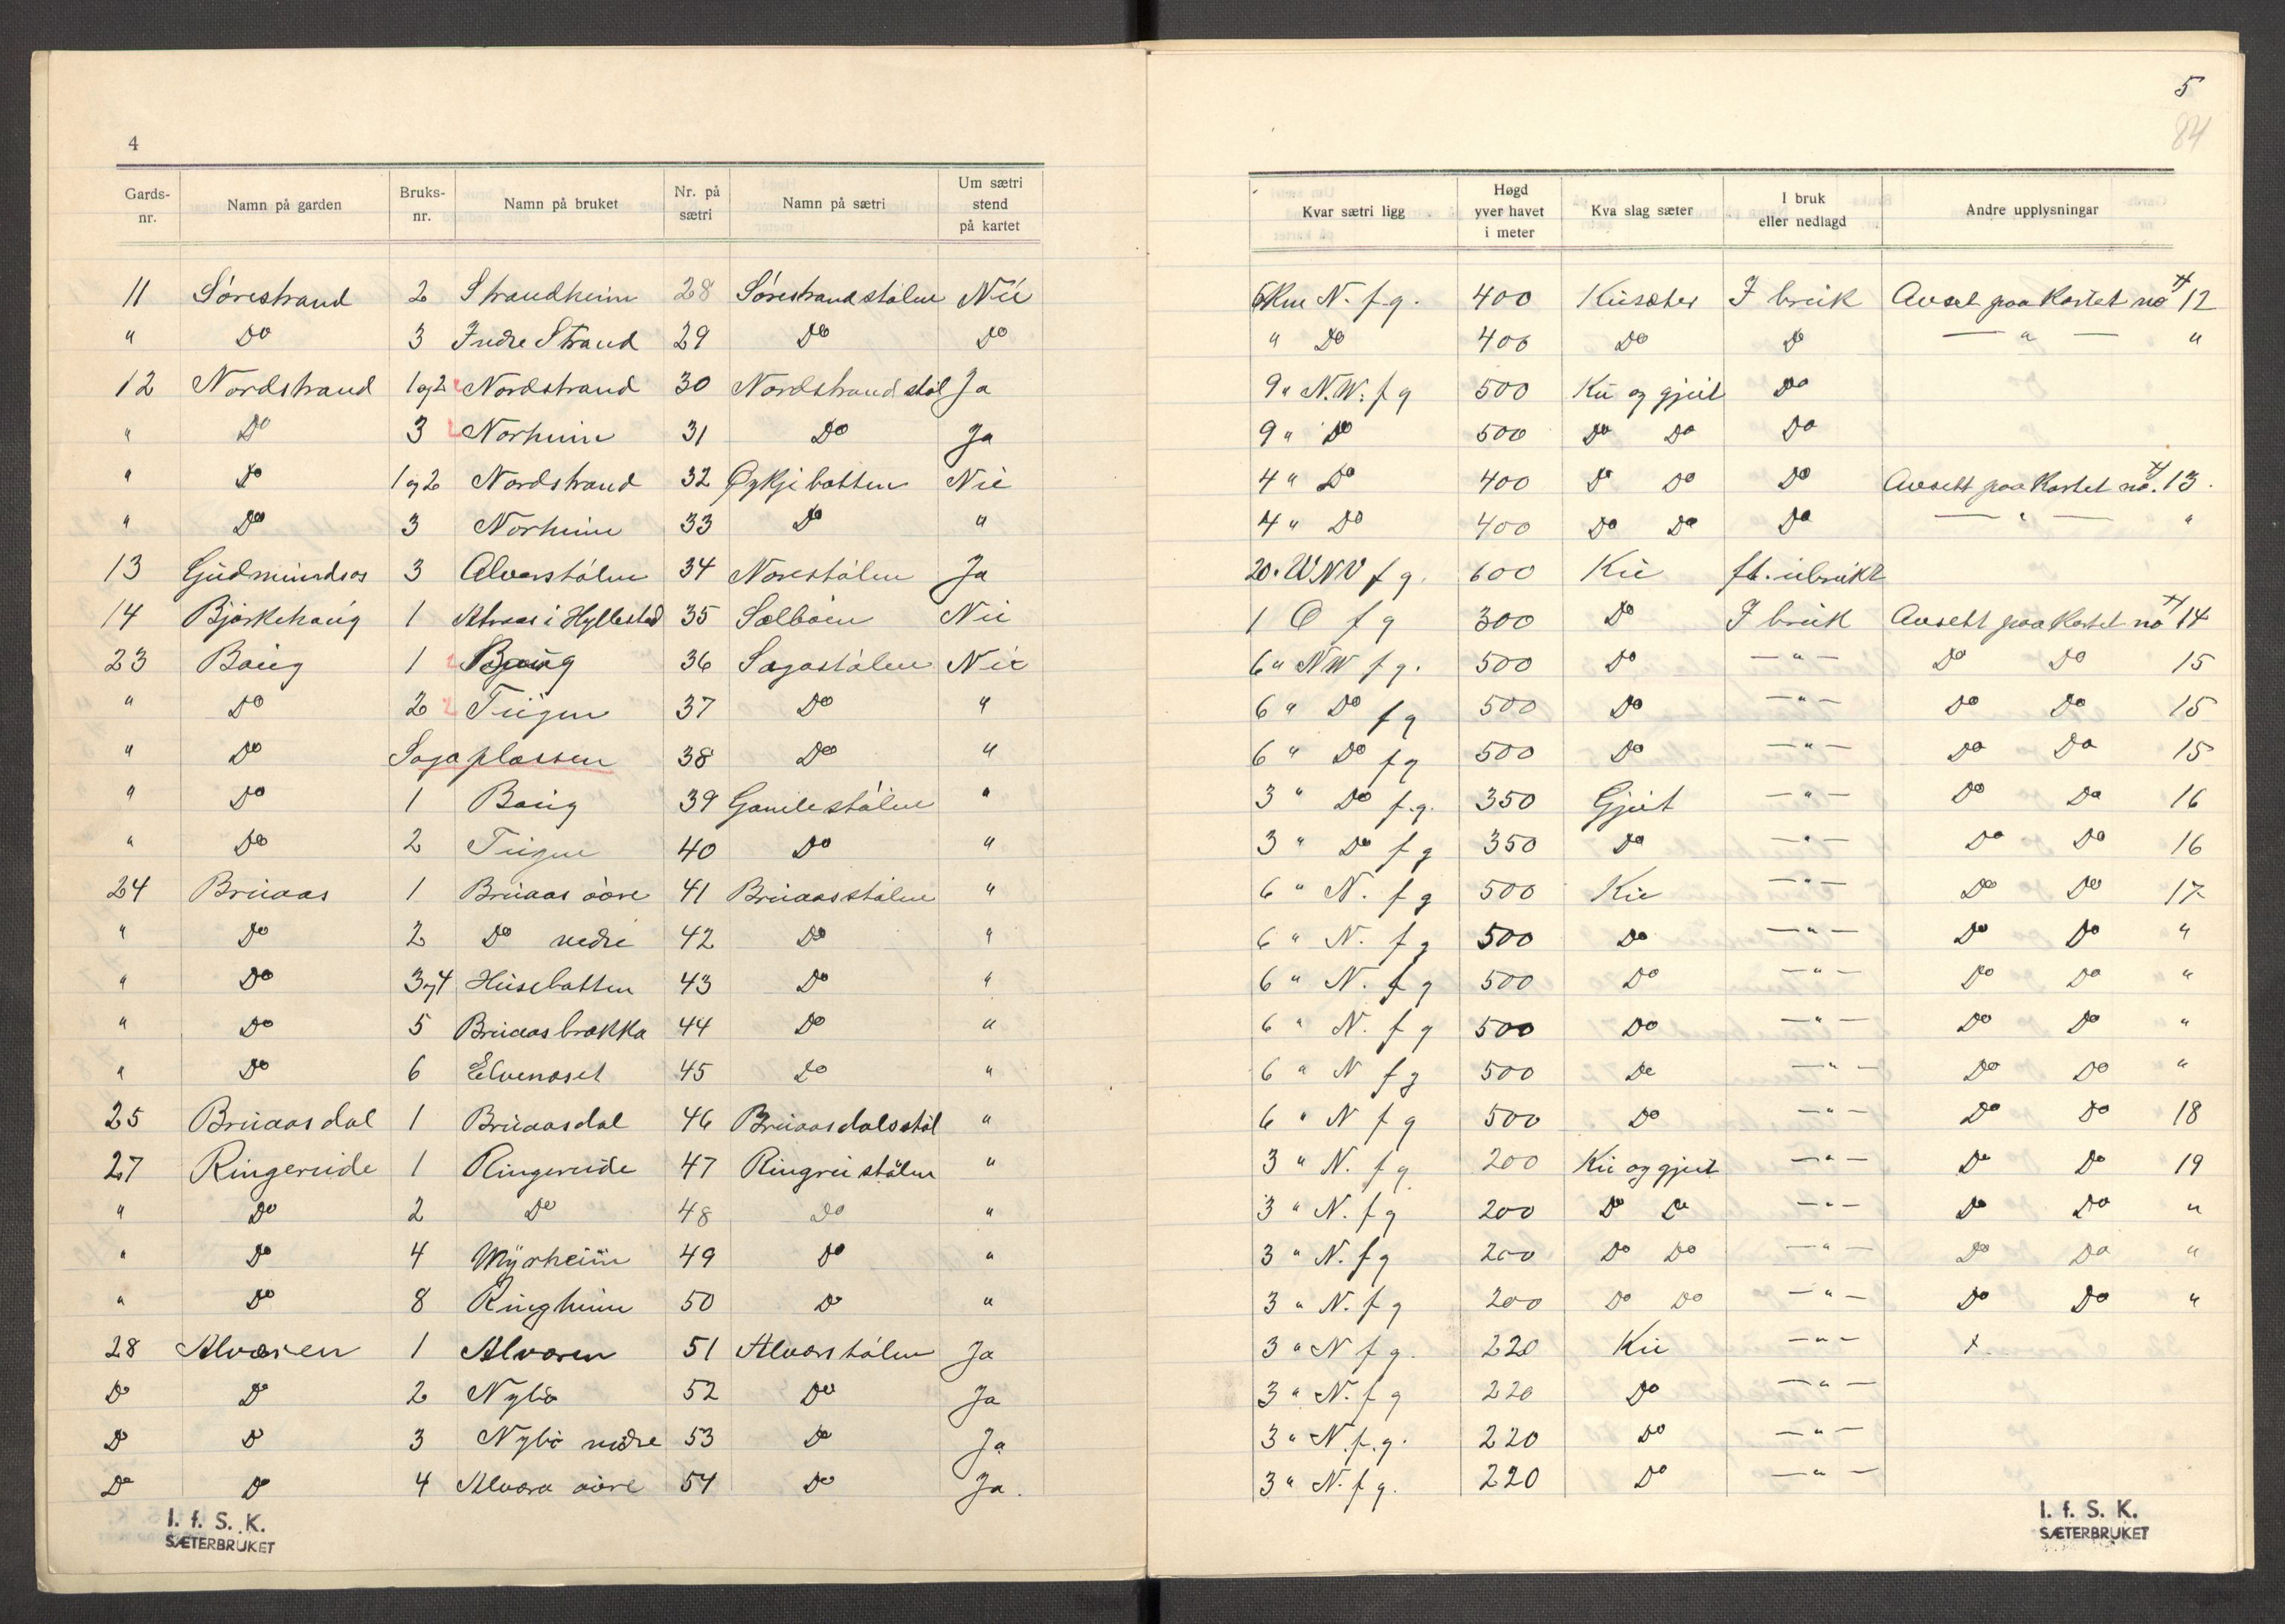 4
Gards-nr. Namn på garden Bruks-nr. Namn på bruket Nr. på sætri Namn på sætri Um sætri stend på kartet
11 Sørestrand 2 Strandheim 28 Sørestrandstølen Nei
" Do 3 Indre Strand 29 Do Do
12 Nordstrand 1 og 2 Nordstrand 30 Nordstrandstøl Ja
" Do 3 Norheim 31 Do Ja
" Do 1 og 2 Nordstrand 32 Nei
" Do 3 Norheim 33 Do "
13 Gudmundsos 3 Alverstølen 34 Norestølen Ja
14 Bjørkehaug 1 Aaraas i Hyllestad 35 Sølbøen Nei
23 Baug 1 Baug 36 Sagastølen Nei
" Do 2 Teigen 37 Do "
" Do Sagaplassen 38 Do "
" Do 1 Baug 39 Gamlestølen "
" Do 2 Teigen 40 Do "
24 Bruaas 1 Bruaas øvre 41 Bruaasstølen "
" Do 2 Do nedre 42 Do "
" Do 3 og 4 Husebotten 43 Do "
" Do 5 Bruaasbrakka 44 Do "
" Do 6 Elveneset 45 Do "
25 Bruaasdal 1 Bruaasdal 46 Bruaasdalsstøl "
27 Ringereide 1 Ringereide 47 Ringreistølen "
" Do 2 Do 48 Do "
" Do 4 Myrheim 49 Do "
" Do 8 Ringheim 50 Do "
28 Alværen 1 Alværen 51 Alverstølen Ja
Do Do 2 Nybø 52 Do Ja
Do Do 3 Nybø nedre 53 Do Ja
Do Do 4 Alværa øvre 54 Do Ja.
I. f. S. K.
SÆTERBRUKET
5
84
Kvar sætri ligg Høgd yver havet i meter Kva slag sæter I bruk eller nedlagd Andre upplysningar
6 Km N. f. g. 400 Kusæter I bruk Avset paa Kartet no 12
" Do 400 Do Do — " — "
9 " N.W. f g 500 Ku og gjeit Do
9 " Do 500 Do Do Do
4 " Do 400 Do Do Do Avsett paa Kartet no. 13.
4 " Do 400 Do Do Do — " — "
20 " WNV f g. 600 Ku ft. ubrukt
1 O f g 300 Do I bruk Avsett paa Kartet no 14
6 " NW f g. 500 Do — " — Do Do 15
6 " Do f g 500 Do — " — Do Do 15
6 " Do f g 500 Do — " — Do Do 15
3 " Do f. g. 350 Gjeit — " — Do Do 16
3 " Do f g 350 Do — " — Do Do 16
6 " N. f g 500 Ku — " — Do Do 17
6 " N. f g 500 Do — " — Do Do "
6 " N. f g 500 Do — " — Do Do "
6 " N. f g 500 Do — " — Do Do "
6 " N f g 500 Do — " — Do Do "
6 " N f g 500 Do — " — Do Do 18
3 " N. f g 200 Ku og gjeit — " — Do Do 19
3 " N. f g 200 Do Do — " — Do Do "
3 " N. f g 200 Do Do — " — Do Do "
3 " N. f g 200 Do Do — " — Do Do "
3 " N f g. 220 Ku — " — x
3 " N. f g 220 Do — " —
3 " N. f. g. 220 Do — " —
3 " N. f g. 220 Do — " —
I. f. S. K.
SÆTERBRUKET